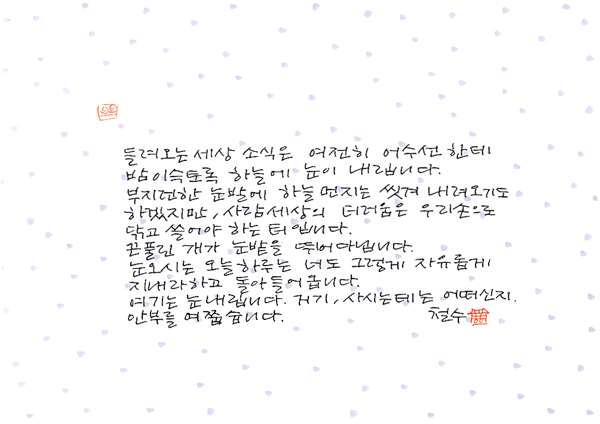 들려오는 세상 소식은 여전히 어수선 한데
밤이슥토록 하늘에 눈이 내립니다.
부지런한 눈발에 하늘 먼지는 씻겨 내려오기도
하겠지만, 사람세상의 더러움은 우리손으로
닦고 쓸어야 하는 터입니다.
끈풀린 개가 눈밭을 뛰어다닙니다.
눈오시는 오늘하루는 너도 그렇게 자유롭게
지내라하고 돌아들어옵니다.
여기는 눈내립니다. 거기, 사시는데는 어떠신지.
안부를 여쭙습니다. 철수